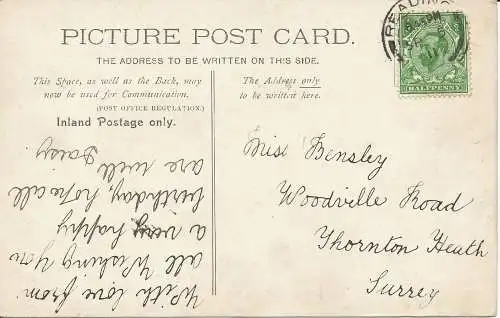 PICTURE POST CARD.
THE ADDRESS TO BE WRITTEN ON THIS SIDE.
This Space, as well as the Back, may
now be used for Communication.
(POST OFFICE REGULATION.)
Inland Postage only.
The Address only
to be written here.
READING
HALFPENNY
Miss Bensley
Woodville Road
Thornton Heath
Surrey
With love from
all Wishing you
a very happy
birthday, hope all
are well
Daisy